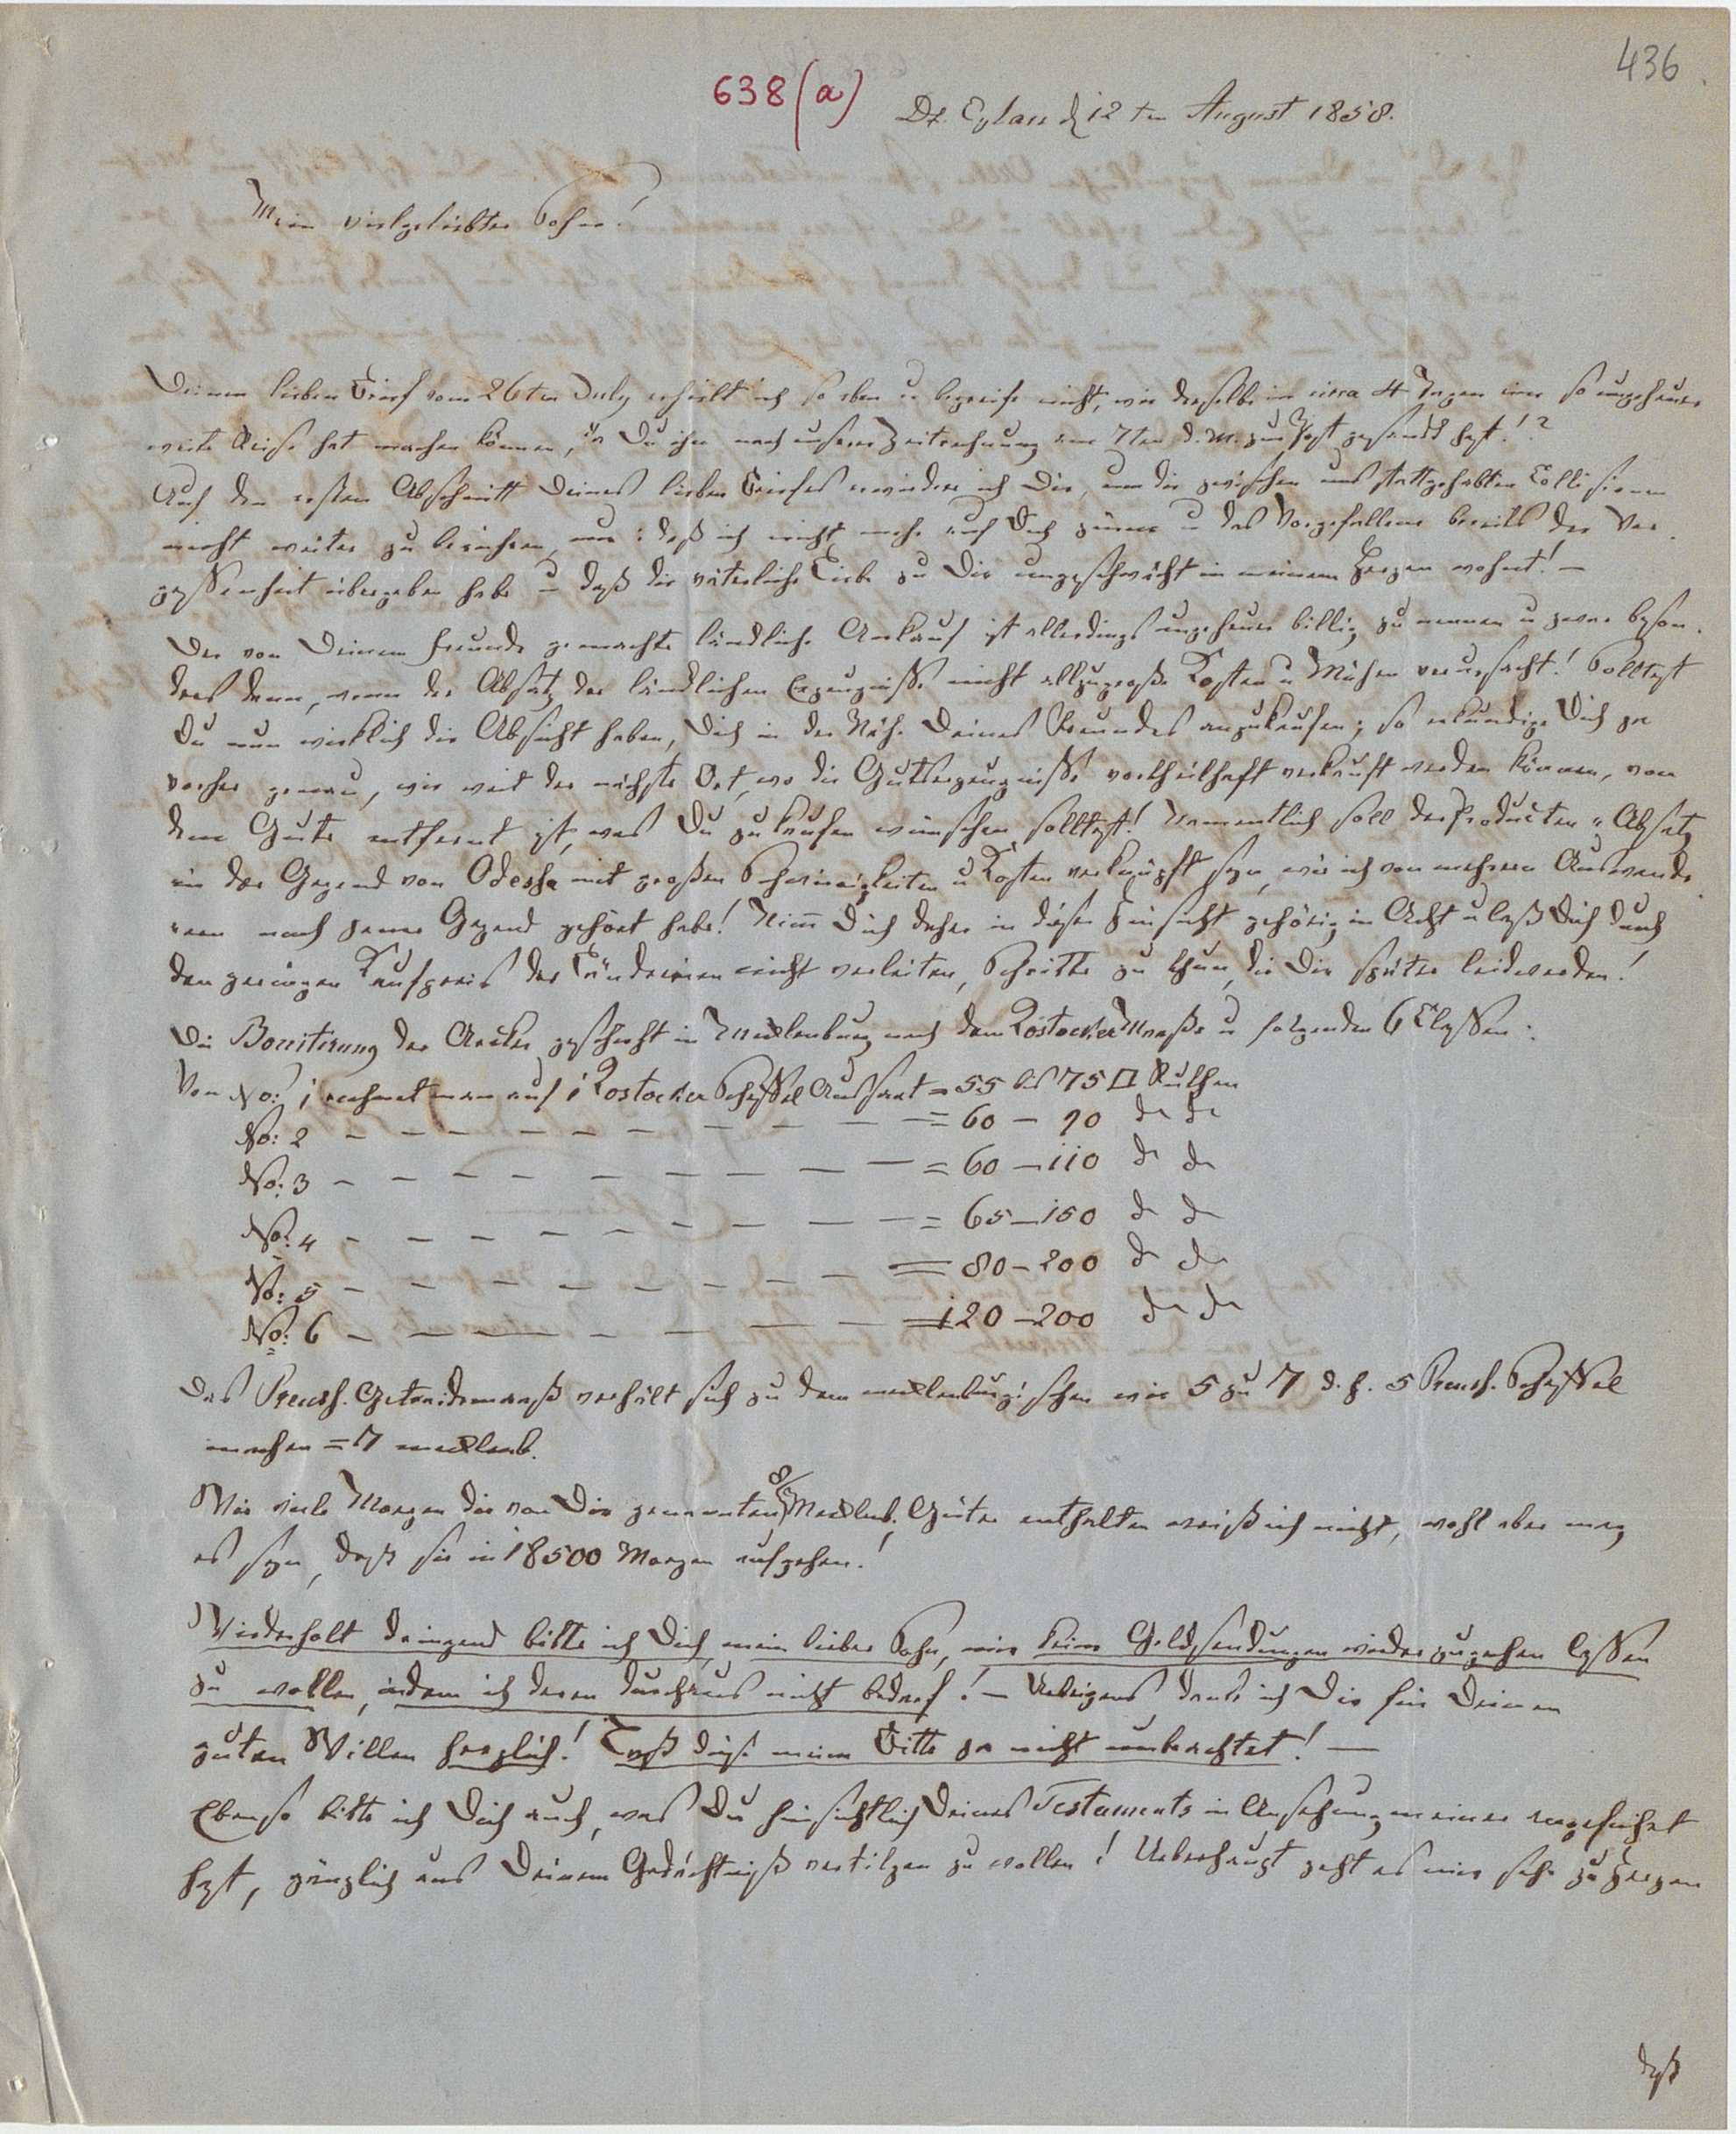 436
638 (a)
Dt. Eylau d 12ten August 1858.
Mein vielgeliebter Sohn!
Deinen lieben Brief vom 26ten July erhielt ich so eben u begreife nicht, wie derselbe in circa 4 Tagen eine so ungeheure
weite Reise hat machen können, da Du ihn nach unserer Zeitrechnung am 7ten d. M. zur Post gesandt hast!?
Auf den ersten Abschnitt Deines lieben Briefes erwiedere ich Dir, um die zwischen uns stattgehabten Collisionen
nicht weiter zu berühren, nur: daß ich nicht mehr auf Dich zürne u das Vorgefallene bereits der Ver-
gessenheit übergeben habe u daß die väterliche Liebe zu Dir ungeschwächt in meinem Herzen wohnt! –
Der von Deinem Freunde gemachte ländliche Ankauf ist allerdings ungeheuer billig zu nennen u zwar beson-
ders dann, wenn der Absatz der ländlichen Erzeugnisse nicht allzugroße Kosten u Mühen verursacht! Solltest
Du nun wirklich die Absicht haben, Dich in der Nähe Deines Freundes anzukaufen; so erkundige Dich ja
vorher genau, wie weit der nächste Ort, wo die Gutserzeugnisse vortheilhaft verkauft werden können, von
dem Gute entfernt ist, was Du zu kaufen wünschen solltest! Namentlich soll der Producten-Absatz
in der Gegend von Odessa mit großen Schwierigkeiten u Kosten verknüpft seyn, wie ich von mehrern Auswande-
rern nach jener Gegend gehört habe! Nimm Dich daher in dieser Hinsicht gehörig in Acht u laß Dich durch
den geringen Kaufpreis der Ländereien nicht verleiten, Schritte zu thun, die Dir später leid werden!
Die Bonitirung der Aecker geschieht in Mecklenburg nach dem Rostocker Maaße u folgenden 6 Classen:
Von No: 1 rechnet man auf 1 Rostocker Scheffel Aussaat = 55 bis 75 □ Ruthen
No: 2 – – – – – – – – – – = 60 – 90 do do
No: 3 – – – – – – – – – – = 60 – 110 do do
No: 4 – – – – – – – – – – = 65 – 150 do do
No: 5 – – – – – – – – – – = 80 – 200 do do
No: 6 – – – – – – – – – – = 120 – 200 do do
Das Preuss. Getreidemaaß verhält sich zu dem mecklenburgischen wie 5 zu 7 d. h. 5 Preuss. Scheffel
machen = 7 mecklenb.
Wie viele Morgen die von Dir genannten 8 Mecklenb. Güter enthalten weiß ich nicht, wohl aber mag
es seyn, daß sie in 18500 Morgen aufgehen!
Wiederholt dringend bitte ich Dich, mein lieber Sohn, mir keine Geldsendungen wieder zugehen lassen
zu wollen, indem ich deren durchaus nicht bedarf! – Uebrigens danke ich Dir für Deinen
guten Willen herzlich! Laß diese meine Bitte ja nicht unbeachtet! –
Ebenso bitte ich Dich auch, was Du hinsichtlich Deines Testaments in Ansehung meiner angeführt
hast, gänzlich aus Deinem Gedächtniß vertilgen zu wollen! Ueberhaupt geht es mir sehr zu Herzen
daß